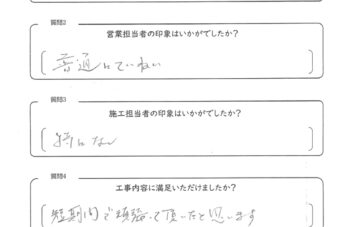 質問2
営業担当者の印象はいかがでしたか？
普通にていねい
質問3
施工担当者の印象はいかがでしたか？
特になし
質問4
工事内容に満足いただけましたか？
短期間で頑張って頂いたと思います